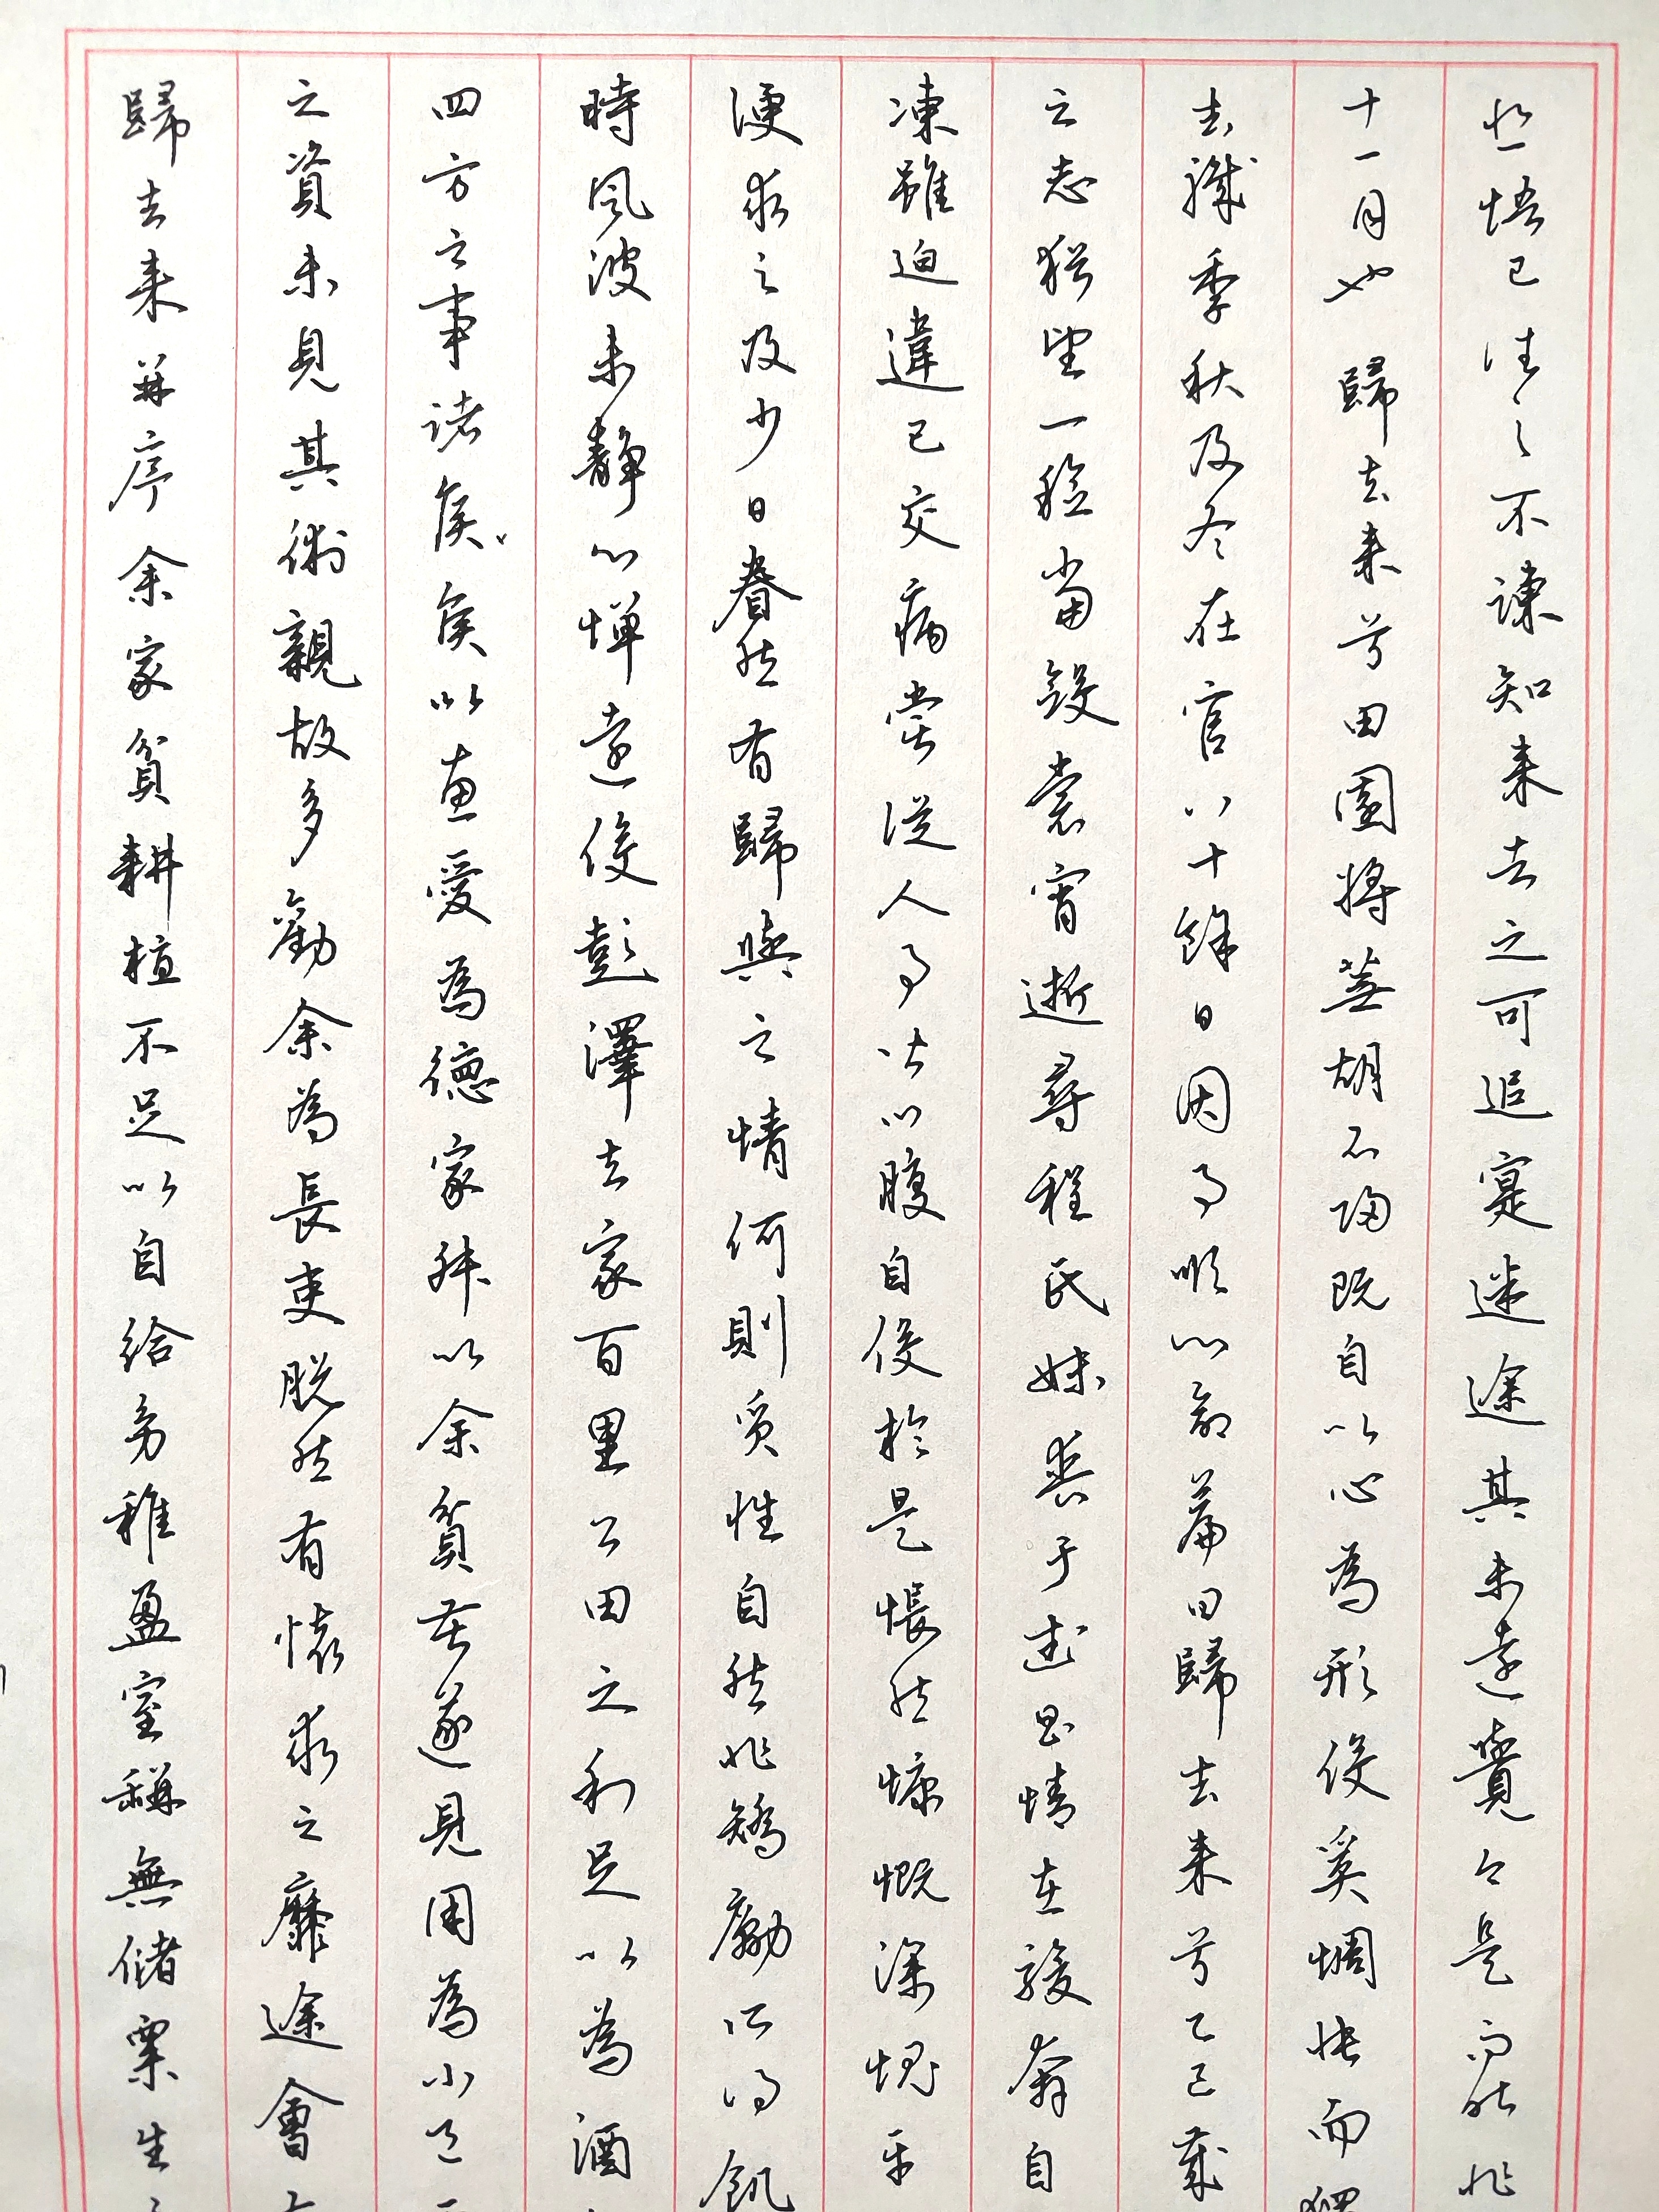 歸去来并序余家貧耕植不足以自給幼稚盈室缾無儲粟生
之資未見其術親故多勸余為長吏脱然有懷求之靡途會
四方之事諸侯侯以惠愛為德家叔以余貧苦遂見用為小邑
時風波未靜心憚遠役彭澤去家百里公田之利足以為酒
便求之及少日眷然有歸與之情何則質性自然非矯勵所得飢
凍雖迫違己交病嘗從人事皆口腹自役於是悵然慷慨深愧平
之志猶望一稔當斂裳宵逝尋程氏妹喪于武昌情在駿奔自
去職季秋及冬在官八十餘日因事順心命篇曰歸去来兮乙巳歲
十一月也 歸去来兮田園將蕪胡不歸既自以心為形役奚惆悵而獨
悲悟已往之不諫知来者之可追寔迷途其未遠覺今是而昨非